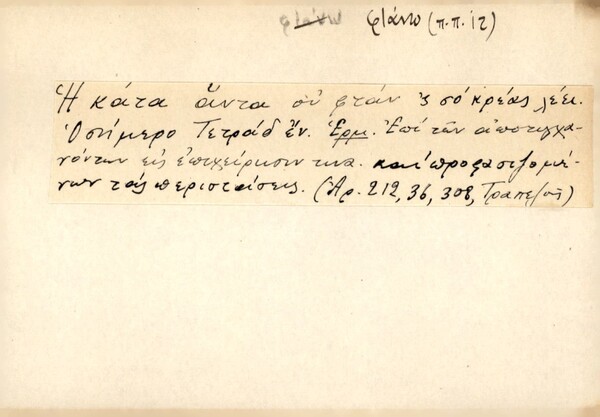 φτάνω φτάνω (π.π. 12)
Ἡ κάτα ἅντα οὐ φτάν 'ς σό κρέας λέει.
Ὁ σήμερο Τετράδ ἔν. Ἑρμ. Ἐπί τῶν ἀποτυγχα-
νόντων εἰς ἐπιχείρησιν τινα καί προφασιζομέ-
νων τάς περιστάσεις. (Ἀρ. 212, 36, 308, Τραπεζοῦς)